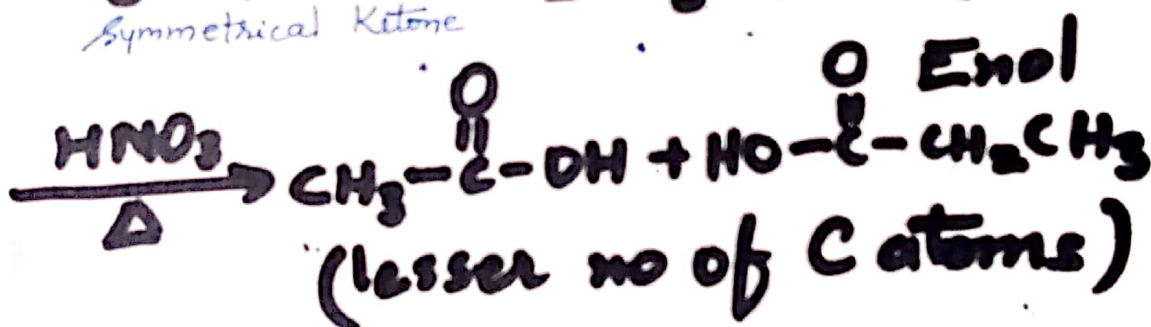 Symmetrical Ketone
O O Enol
HNO3 CH3-C-OH + HO-C-CH2CH3
Δ
(lesser no of C atoms)